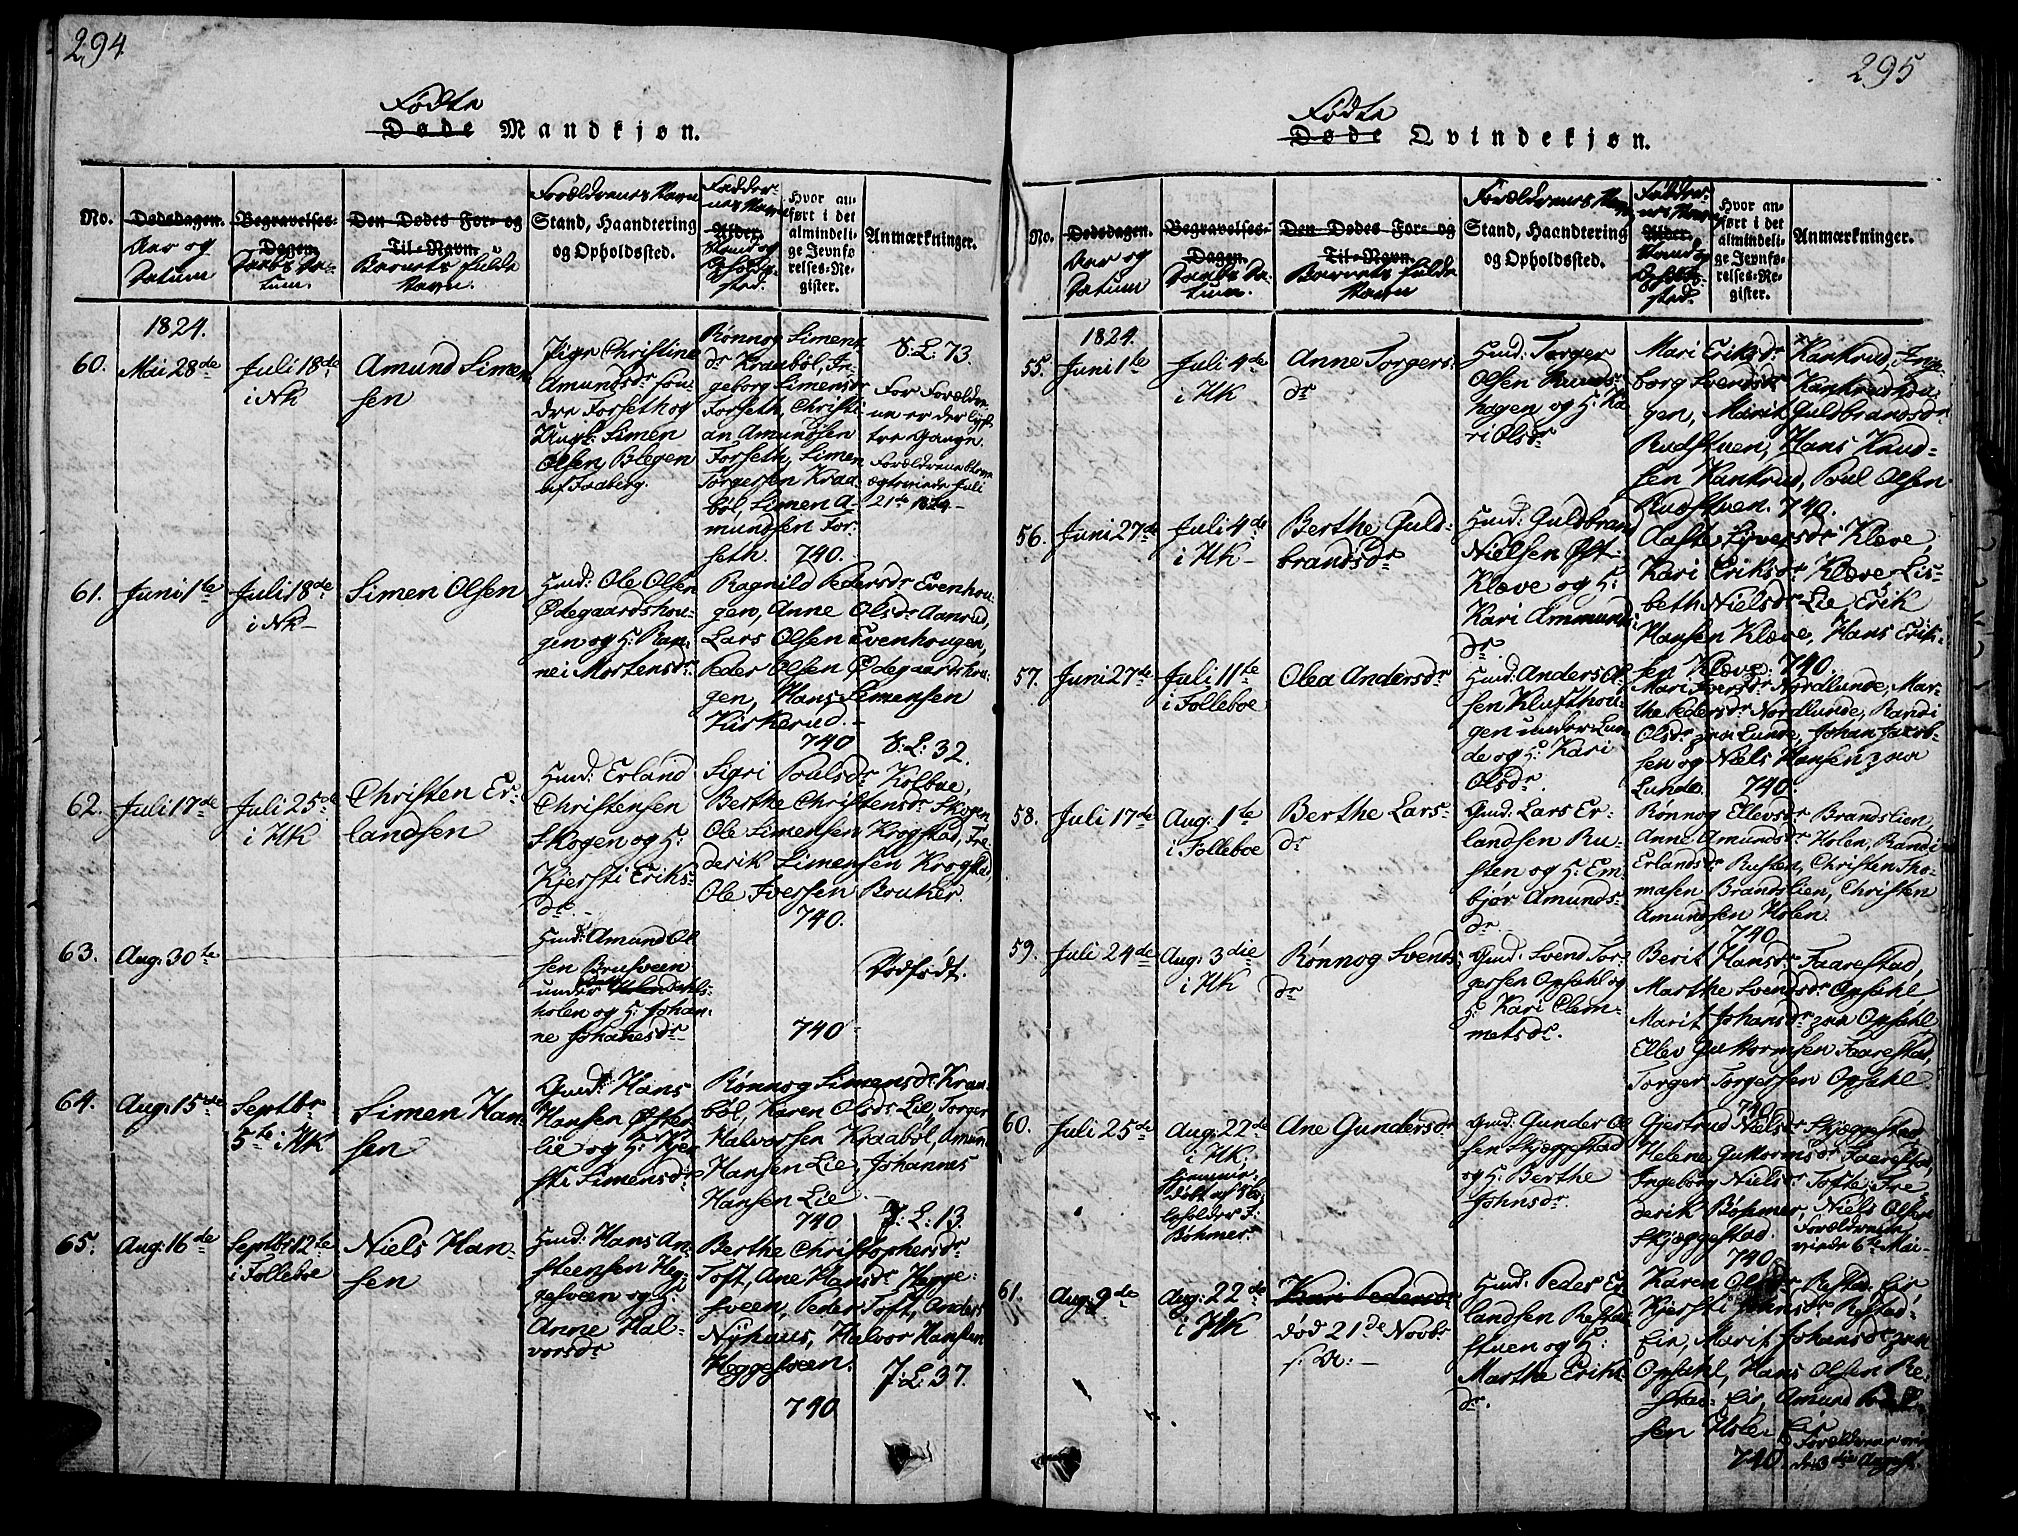 294
Fødte
Døde Mandkjøn.
No.
Dødsdagen.
Aar og
Datum
Begravelses-
Dagen.
Daabs Da-
tum.
Den Dødes For- og
Til-Navn.
Barnets fulde
Navn.
Forældrenes Navn
Stand, Haandtering
og Opholdssted.
Fadder-
nes Navn
Alder.
Stand og
Opholds-
sted.
Hvor an-
ført i det
almindeli-
ge Jevnfø-
relses-Re-
gister.
Anmærkninger.
1824.
60.
Mai 28de
Juli 18de
i NK
Amund Simen
sen
Pige Christine
Amundsdr Son-
dre Forseth og
Ungk: Simen
Olsen Blegen
af Faaberg.
Rønnog Simens
dr Kraabøl, In-
geborg Simensdr
Forseth, Christi
an Amundsen
Forseth, Simen
Torgersen Kraa-
bøl, Simen A-
mundsen For-
seth. 740.
S: L: 73.
For Forældre
ne er der lyst
tre Gange.
Forældrene bleve
ægteviede Juli
21de 1824-
61.
Juni 1te
Juli 18de
i NK-
Simen Olsen
Huusd: Ole Olsen
Ødegaardshou-
gen og H: Ran-
nei Mortensdr
Ragnild Pedersdr Evenhou-
gen, Anne Olsdr Aanrud,
Lars Olsen Evenhougen,
Peder Olsen Ødegaardshou-
gen, Hans Simensen
Kirkerud.-
740
S: L: 32.
62.
Juli 17de
Juli 25de
i HK
Christen Er-
landsen
Huusd: Erland
Christensen
Skogen og H:
Kjersti Eriks-
dr.-
Sigri Poulsdr Kolboe,
Berthe Christensdr Skogen,
Ole Simensen Krogstad, Fre-
derik Simensen Krogstad,
Ole Iversen
740.
63.
Aug: 30te
Huusd: Amund Ol
sen Brusveen
under
holen og H: Johan-
ne Johanesdr
740
Dødfødt.
64.
Aug: 15de
Septbr
5te i HK
Simen Han
sen
Gmd: Hans
Hansen Øster
lie og H: Kjer
sti Simensdr
Rønnog Simensdr Kraa-
bøl, Karen Olsdr Lie, Torger
Halvorsen Kraabøl, Amun
Hansen Lie, Johannes
Hansen Lie
740
J: L: 13.
65.
Aug: 16de
Septbr 12te
i Folleboe
Niels Han-
sen
Huusd: Hans An-
steensen Heg-
gesveen og H:
Anne Hal-
vorsdr
Berthe Christophersdr
Toft, Ane Hansdr Hegge-
sveen, Peder Toft, Anders
Nyhaus, Halvor Hansen
Heggesveen.
J: L: 37.
740
295
Fødte
Døde Qvindekjøn.
No.
Dødsdagen.
Aar og
Datum
Begravelses-
Dagen.
Daabs Da-
tum.
Den Dødes For- og
Til-Navn.
Barnets fulde
Navn
Forældrenes Navn
Stand, Haandtering
og Opholdssted.
Fadder-
nes Navn
Alder,
Stand og
Opholds-
sted.
Hvor an-
ført i det
almindeli-
ge Jevnfø-
relses-Re-
gister.
Anmærkninger.
1824.
55.
Juni 1te
Juli 4de
i HK
Anne Torgers-
dr
Huusd: Torger
Olsen
hagen og H: Ka
ri Olsdr
Mari Eriksdr Kankrud, Inge-
borg Svendsdr Kankrudha-
gen, Marit Guldbrandsdr
Rudstuen, Hans Knud-
sen Kankrud, Poul Olsen
Rudstuen. 740.
56.
Juni 27de
Juli 4de
i HK-
Berthe Guld-
brandsdr
Huusd: Guldbrand
Nielsen Øst-
Kleve og H:
Kari Ammunds
dr
Aaste Syversdr Kleve,
Kari Eriksdr Kleve, Lis-
beth Nielsdr Lie, Erik
Hansen Kleve, Hans Erik-
sen Kleve. 740.
57.
Juni 27de
Juli 11te
i Folleboe
Olea Andersdr
Huusd: Anders Ol-
sen Klufthou-
gen under Lun-
de og H: Kari
Olsdr.
Mari Iversdr Nordlunde, Mar-
the Pedersdr Nordlunde, Randi
Olsdr paa Lunde, Johan Jacob-
sen og Niels Hansen paa
Lunde. 740.
58.
Juli 17de
Aug: 1te
i Folleboe
Berthe Lars-
dr
Gmd: Lars Er-
landsen Ru-
sten og H: Em-
bjør Amunds-
dr
Rønnog Ellevsdr Brandslien,
Anne Amundsdr Holen, Randi
Erlandsdr Rusten, Christen Tho-
masen Brandslien, Christen
Amundsen Holen.
740
59.
Juli 24de
Aug: 3die
i HK
Rønnog Svends
dr
Gmd: Svend Tor-
gersen Opsahl og
H: Kari Clem-
metsdr.
Berit Hansdr Faarestad,
Marthe Svendsdr Opsahl,
Marit Johansdr paa Opsahl,
Ellev Guttormsen Faarestad,
Torger Torgersen Opsahl
740
60.
Juli 25de
Aug: 22de
i HK,
hjemme-
døbt af
F:
Bøhmer
Ane Gundersdr
Gmd: Gunder Ol
sen Skjæggestad
og H: Berthe
Johnsdr
Gjertrud Nielsdr Skjæggestad
Helene Guttormsdr Faarestad,
Ingeborg Nielsdr Tofte, Fre
derik Bøhmer, Niels Olsen
Skjæggestad.
740.
Forældrene
viede 6te Mai-
61.
Aug: 9de
Aug: 22de
i HK
Kari Pedersdr
død 21de Novbr
s: A: -
Huusd: Peder Er
landsen
stuen og H:
Marthe Eriks
dr.
Karen Olsdr
Kjersti
Eie, Marit Johansdr paa
Opsahl, Hans Olsen Re-
stad Eie, Amund
sen Holen Eie
740.
Forældrene vie-
de 3die August.